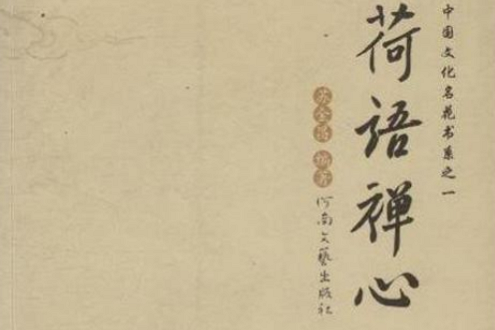 中国文化名花书系之一
荷語禅心
编著
河南文藝出版社